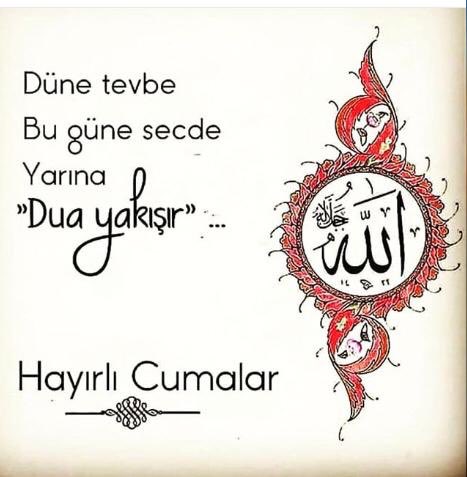 Düne tevbe
Bu güne secde
Yarına
"Dua yakışır" ...
الله
جل جلاله
١٤ ٢٢
Hayırlı Cumalar